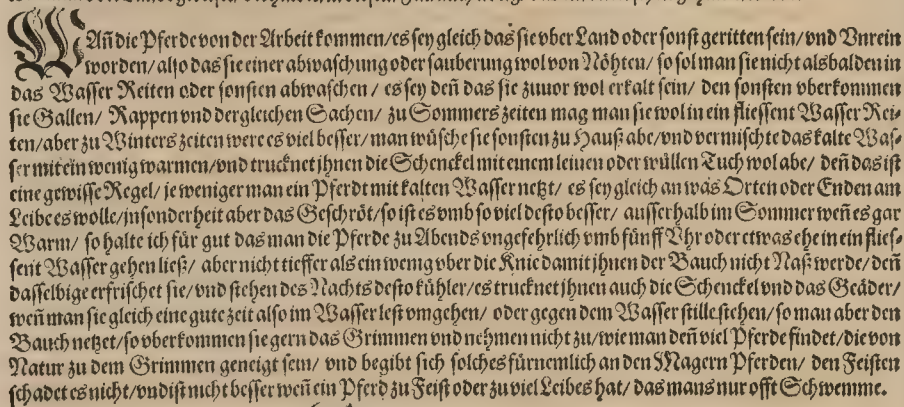 WAñ die Pferde von der Arbeit kommen/ es sey gleich das sie vber Land oder sonst geritten sein/ vnd Vnrein
worden/ also das sie einer abwaschung oder sauberung wol von Nöhten/ so sol man sie nicht alsbalden in
das Wasser Reiten oder sonsten abwaschen/ es sey deñ das sie zuuor wol erkalt sein/ den sonsten vberkommen
sie Gallen/ Rappen vnd dergleichen Sachen/ zu Sommers zeiten mag man sie wol in ein fliessent Wasser Rei-
ten/ aber zu Winters zeiten were es viel besser/ man wüsche sie sonsten zu Hauß abe/ vnd vermischte das kalte Was-
ser mit ein wenig warmen/ vnd trucknet ihnen die Schenckel mit einem leinen oder wüllen Tuch wol abe/ deñ das ist
eine gewisse Regel/ je weniger man ein Pferdt mit kalten Wasser netzt/ es sey gleich an was Orten oder Enden am
Leibe es wolle/ insonderheit aber das Geschröt/ so ist es vmb so viel desto besser/ ausserhalb im Sommer weñ es gar
Warm/ so halte ich für gut das man die Pferde zu Abends vngefehrlich vmb fünff Vhr oder etwas ehe in ein flies-
sent Wasser gehen ließ/ aber nicht tieffer als ein wenig vber die Knie damit ihnen der Bauch nicht Naß werde/ deñ
dasselbige erfrischet sie/ vnd stehen des Nachts desto kühler/ es trucknet ihnen auch die Schenckel vnd das Geäder/
weñ man sie gleich eine gute zeit also im Wasser lest vmgehen/ oder gegen dem Wasser stille stehen/ so man aber den
Bauch netzet/ so vberkommen sie gern das Grimmen vnd nehmen nicht zu/ wie man deñ viel Pferde findet/ die von
Natur zu dem Grimmen geneigt sein/ vnd begibt sich solches fürnemlich an den Magern Pferden/ den Feisten
schadet es nicht/ vnd ist nicht besser weñ ein Pferd zu Feist oder zu viel Leibes hat/ das mans nur offt Schwemme.